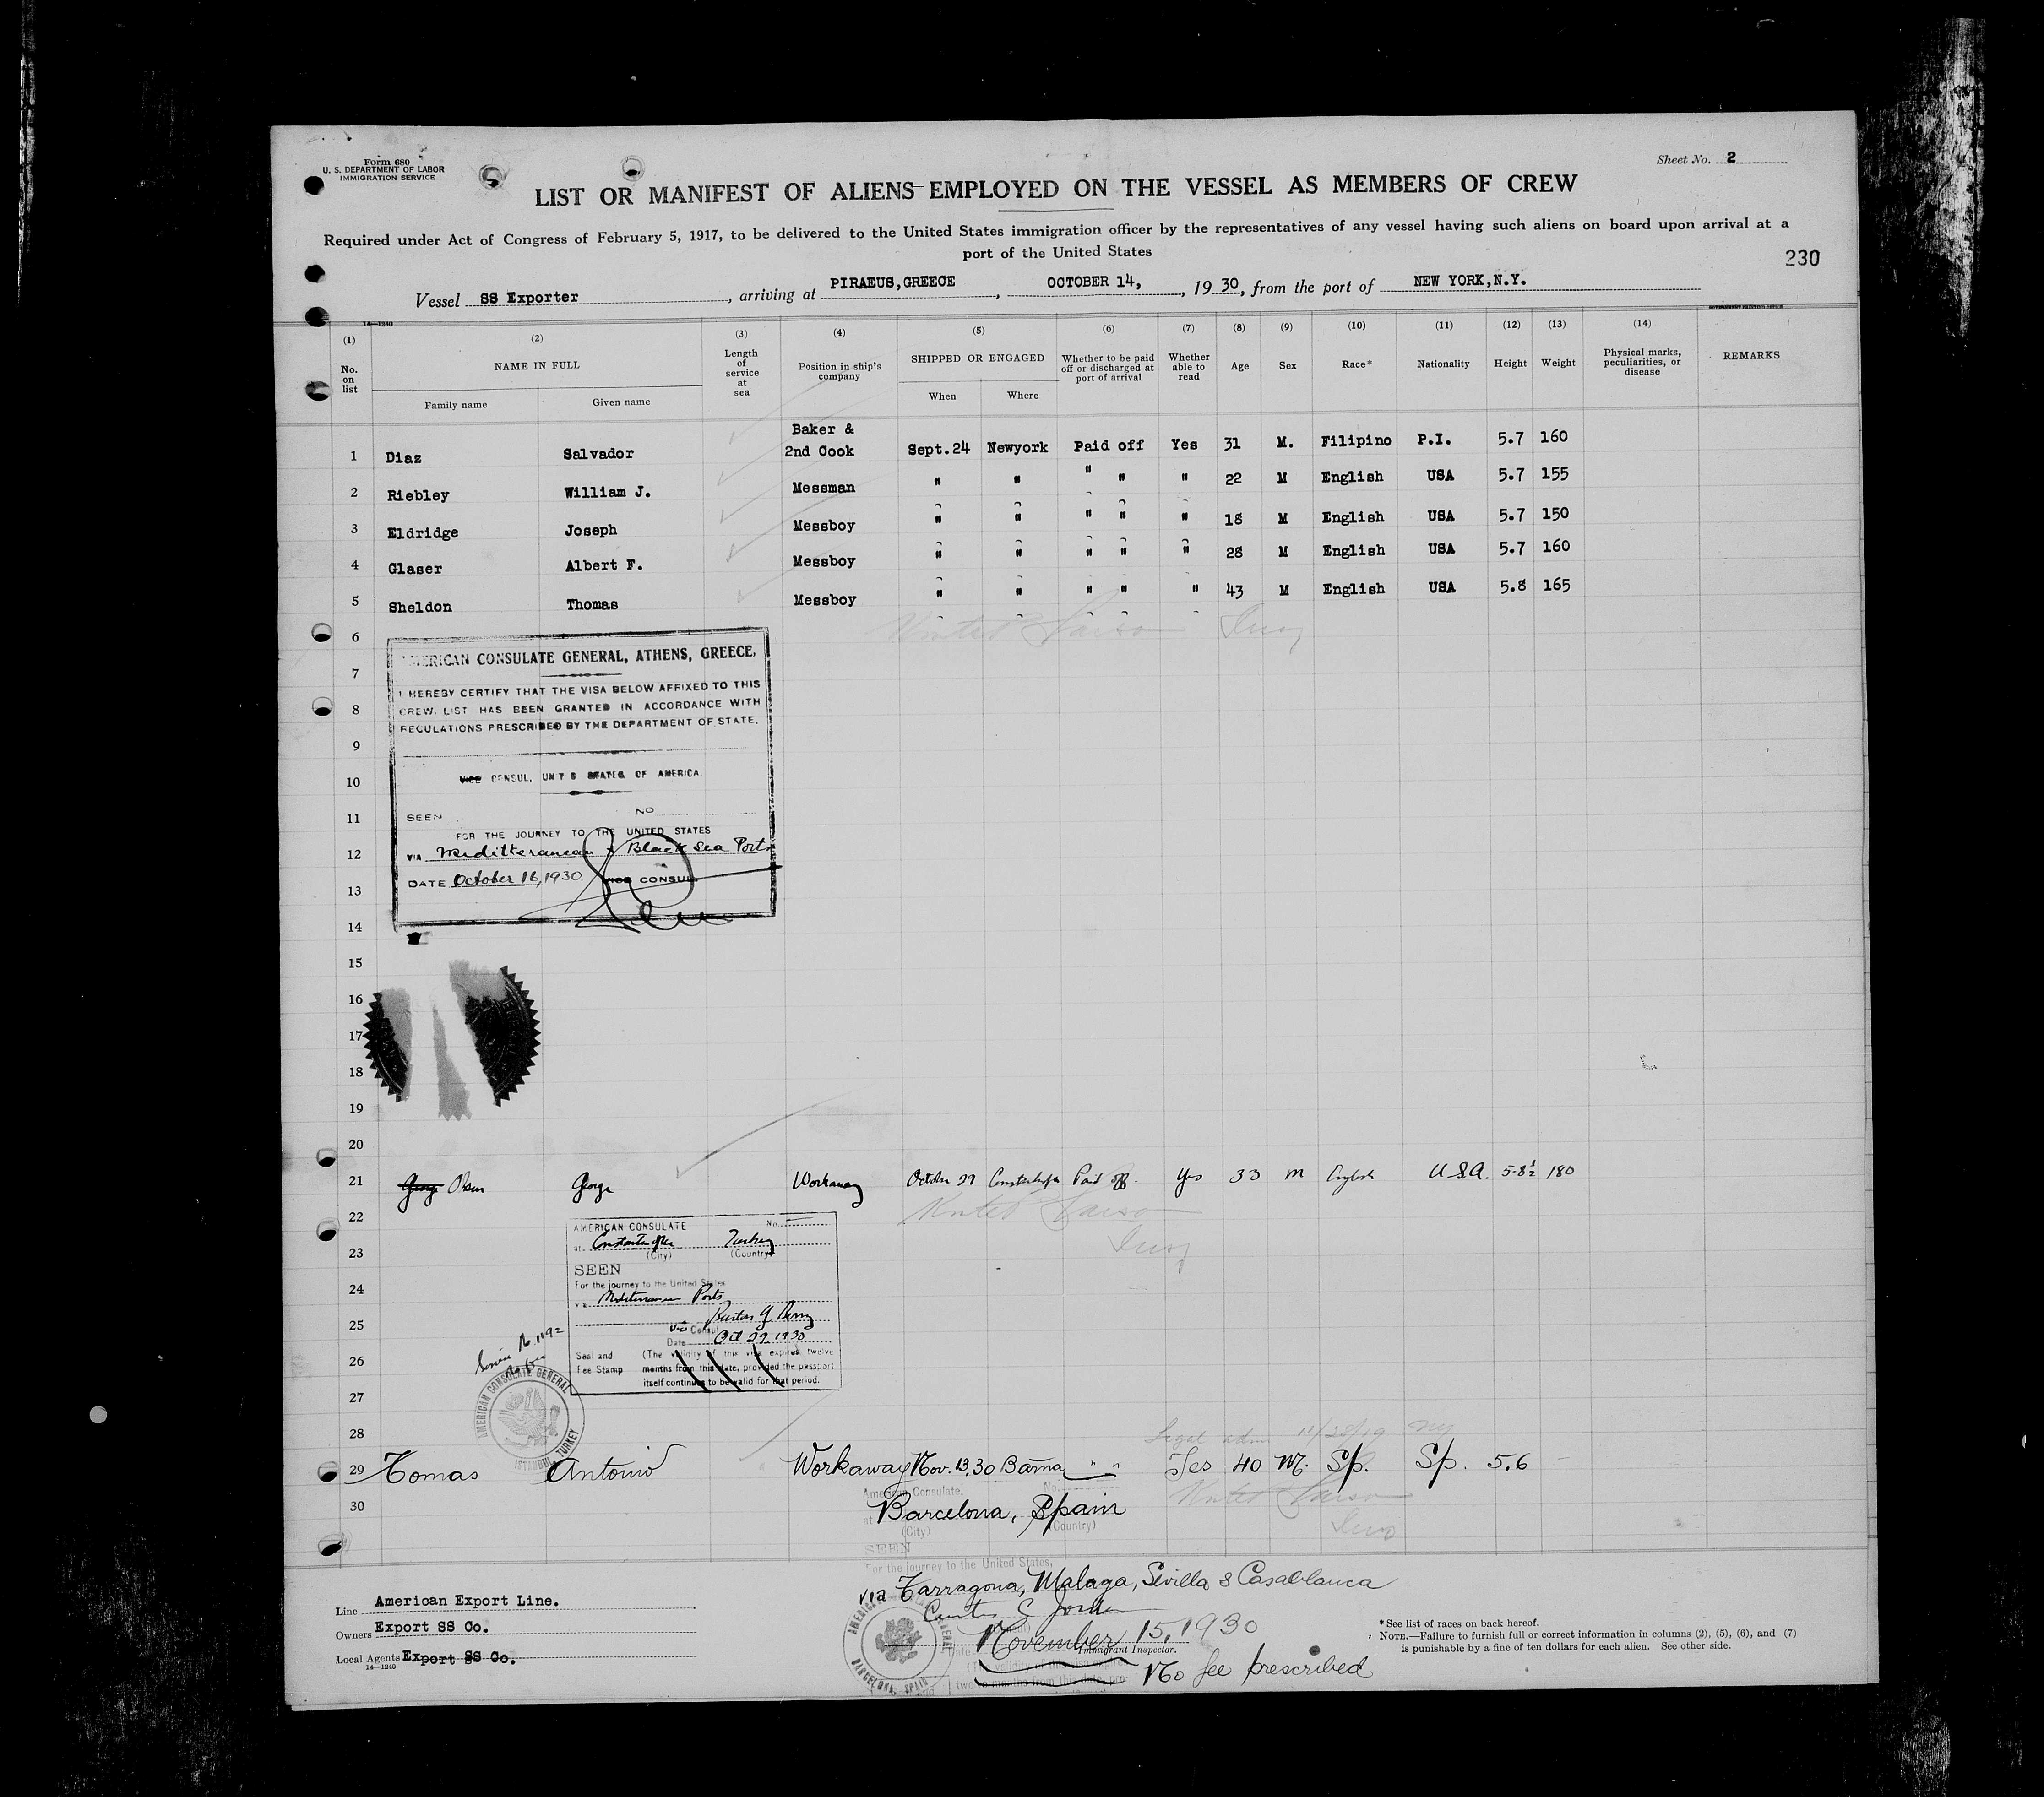 Form 680
U. S. DEPARTMENT OF LABOR
IMMIGRATION SERVICE
Sheet No. 2
LIST OR MANIFEST OF ALIENS EMPLOYED ON THE VESSEL AS MEMBERS OF CREW
Required under Act of Congress of February 5, 1917, to be delivered to the United States immigration officer by the representatives of any vessel having such aliens on board upon arrival at a
port of the United States
230
Vessel SS Exporter, arriving at PIRAEUS,GREECE, OCTOBER 14, 1930, from the port of NEW YORK,N.Y.
14—1240
GOVERNMENT PRINTING OFFICE
(1) (2) (3) (4) (5) (6) (7) (8) (9) (10) (11) (12) (13) (14)
No. on list NAME IN FULL Length of service at sea Position in ship's company SHIPPED OR ENGAGED Whether to be paid off or discharged at port of arrival Whether able to read Age Sex Race* Nationality Height Weight Physical marks, peculiarities, or disease REMARKS
Family name Given name When Where
1 Diaz Salvador Baker & 2nd Cook Sept.24 Newyork Paid off Yes 31 M. Filipino P.I. 5.7 160
2 Riebley William J. Messman " " " " " 22 M English USA 5.7 155
3 Eldridge Joseph Messboy " " " " " 18 M English USA 5.7 150
4 Glaser Albert F. Messboy " " " " " 28 M English USA 5.7 160
5 Sheldon Thomas Messboy " " " " " 43 M English USA 5.8 165
6
AMERICAN CONSULATE GENERAL, ATHENS, GREECE,
7
I HEREBY CERTIFY THAT THE VISA BELOW AFFIXED TO THIS
8
CREW LIST HAS BEEN GRANTED IN ACCORDANCE WITH
REGULATIONS PRESCRIBED BY THE DEPARTMENT OF STATE.
9
10
VICE CONSUL, UNITED STATES OF AMERICA.
11
SEEN NO
FOR THE JOURNEY TO THE UNITED STATES
12
VIA Mediterranean & Black Sea Ports
13
DATE October 16, 1930. VICE CONSUL
14
15
16
17
18
19
20
21 George Olsen George Workaway October 29 Constantinople Paid off. Yes 33 M English U.S.A. 5-8½ 180
22
AMERICAN CONSULATE No.
23
at Constantinople Turkey
(City) (Country)
SEEN
24
For the journey to the United States
via Mediterranean Ports
25
Burton Y Berry
Vice Consul
Date Oct 29 1930
26
Seal and Fee Stamp (The validity of this visa expires twelve
months from this date, provided the passport
itself continues to be valid for that period.
27
AMERICAN CONSULATE GENERAL
ISTANBUL, TURKEY
28
29 Tomas Antonio Workaway Nov. 13, 30 Barna " " Yes 40 M. Sp. Sp. 5.6
30
American Consulate, No.
at Barcelona, Spain
(City) (Country)
SEEN
For the journey to the United States,
via Tarragona, Malaga, Sevilla & Casablanca
Curtis C Jordan
November 15, 1930
Immigrant Inspector.
No fee prescribed
BARCELONA, SPAIN
Line American Export Line.
Owners Export SS Co.
Local Agents Export SS Co.
14—1240
* See list of races on back hereof.
NOTE.—Failure to furnish full or correct information in columns (2), (5), (6), and (7)
is punishable by a fine of ten dollars for each alien. See other side.